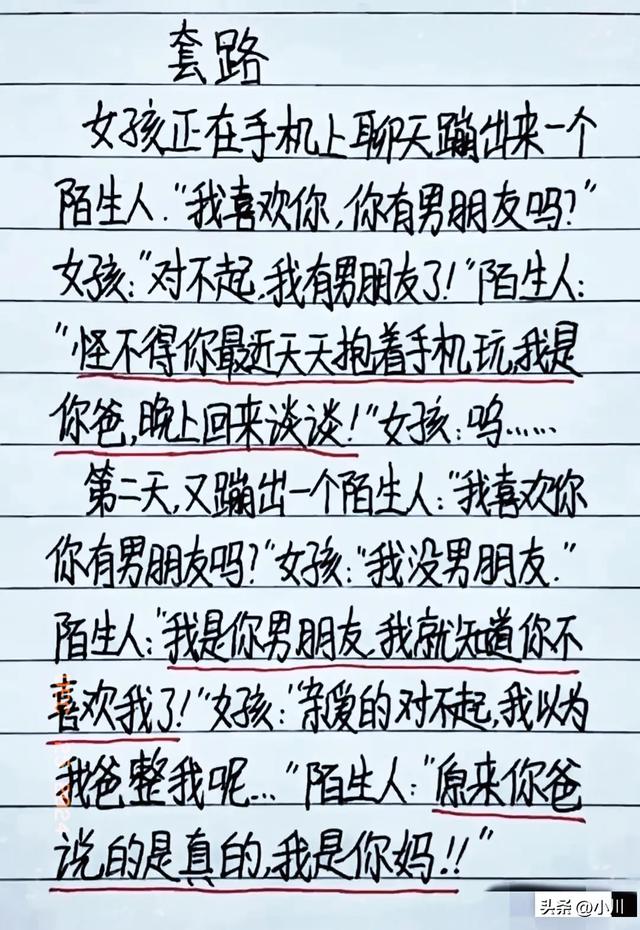 套路
女孩正在手机上聊天蹦出来一个
陌生人."我喜欢你,你有男朋友吗?"
女孩:"对不起,我有男朋友了!"陌生人:
"怪不得你最近天天抱着手机玩,我是
你爸,晚上回来谈谈!"女孩:呜……
第二天,又蹦出一个陌生人:"我喜欢你
你有男朋友吗?"女孩:"我没男朋友."
陌生人:"我是你男朋友,我就知道你不
喜欢我了!"女孩:"亲爱的对不起,我以为
我爸整我呢..."陌生人:"原来你爸
说的是真的,我是你妈!!"
头条 @小川